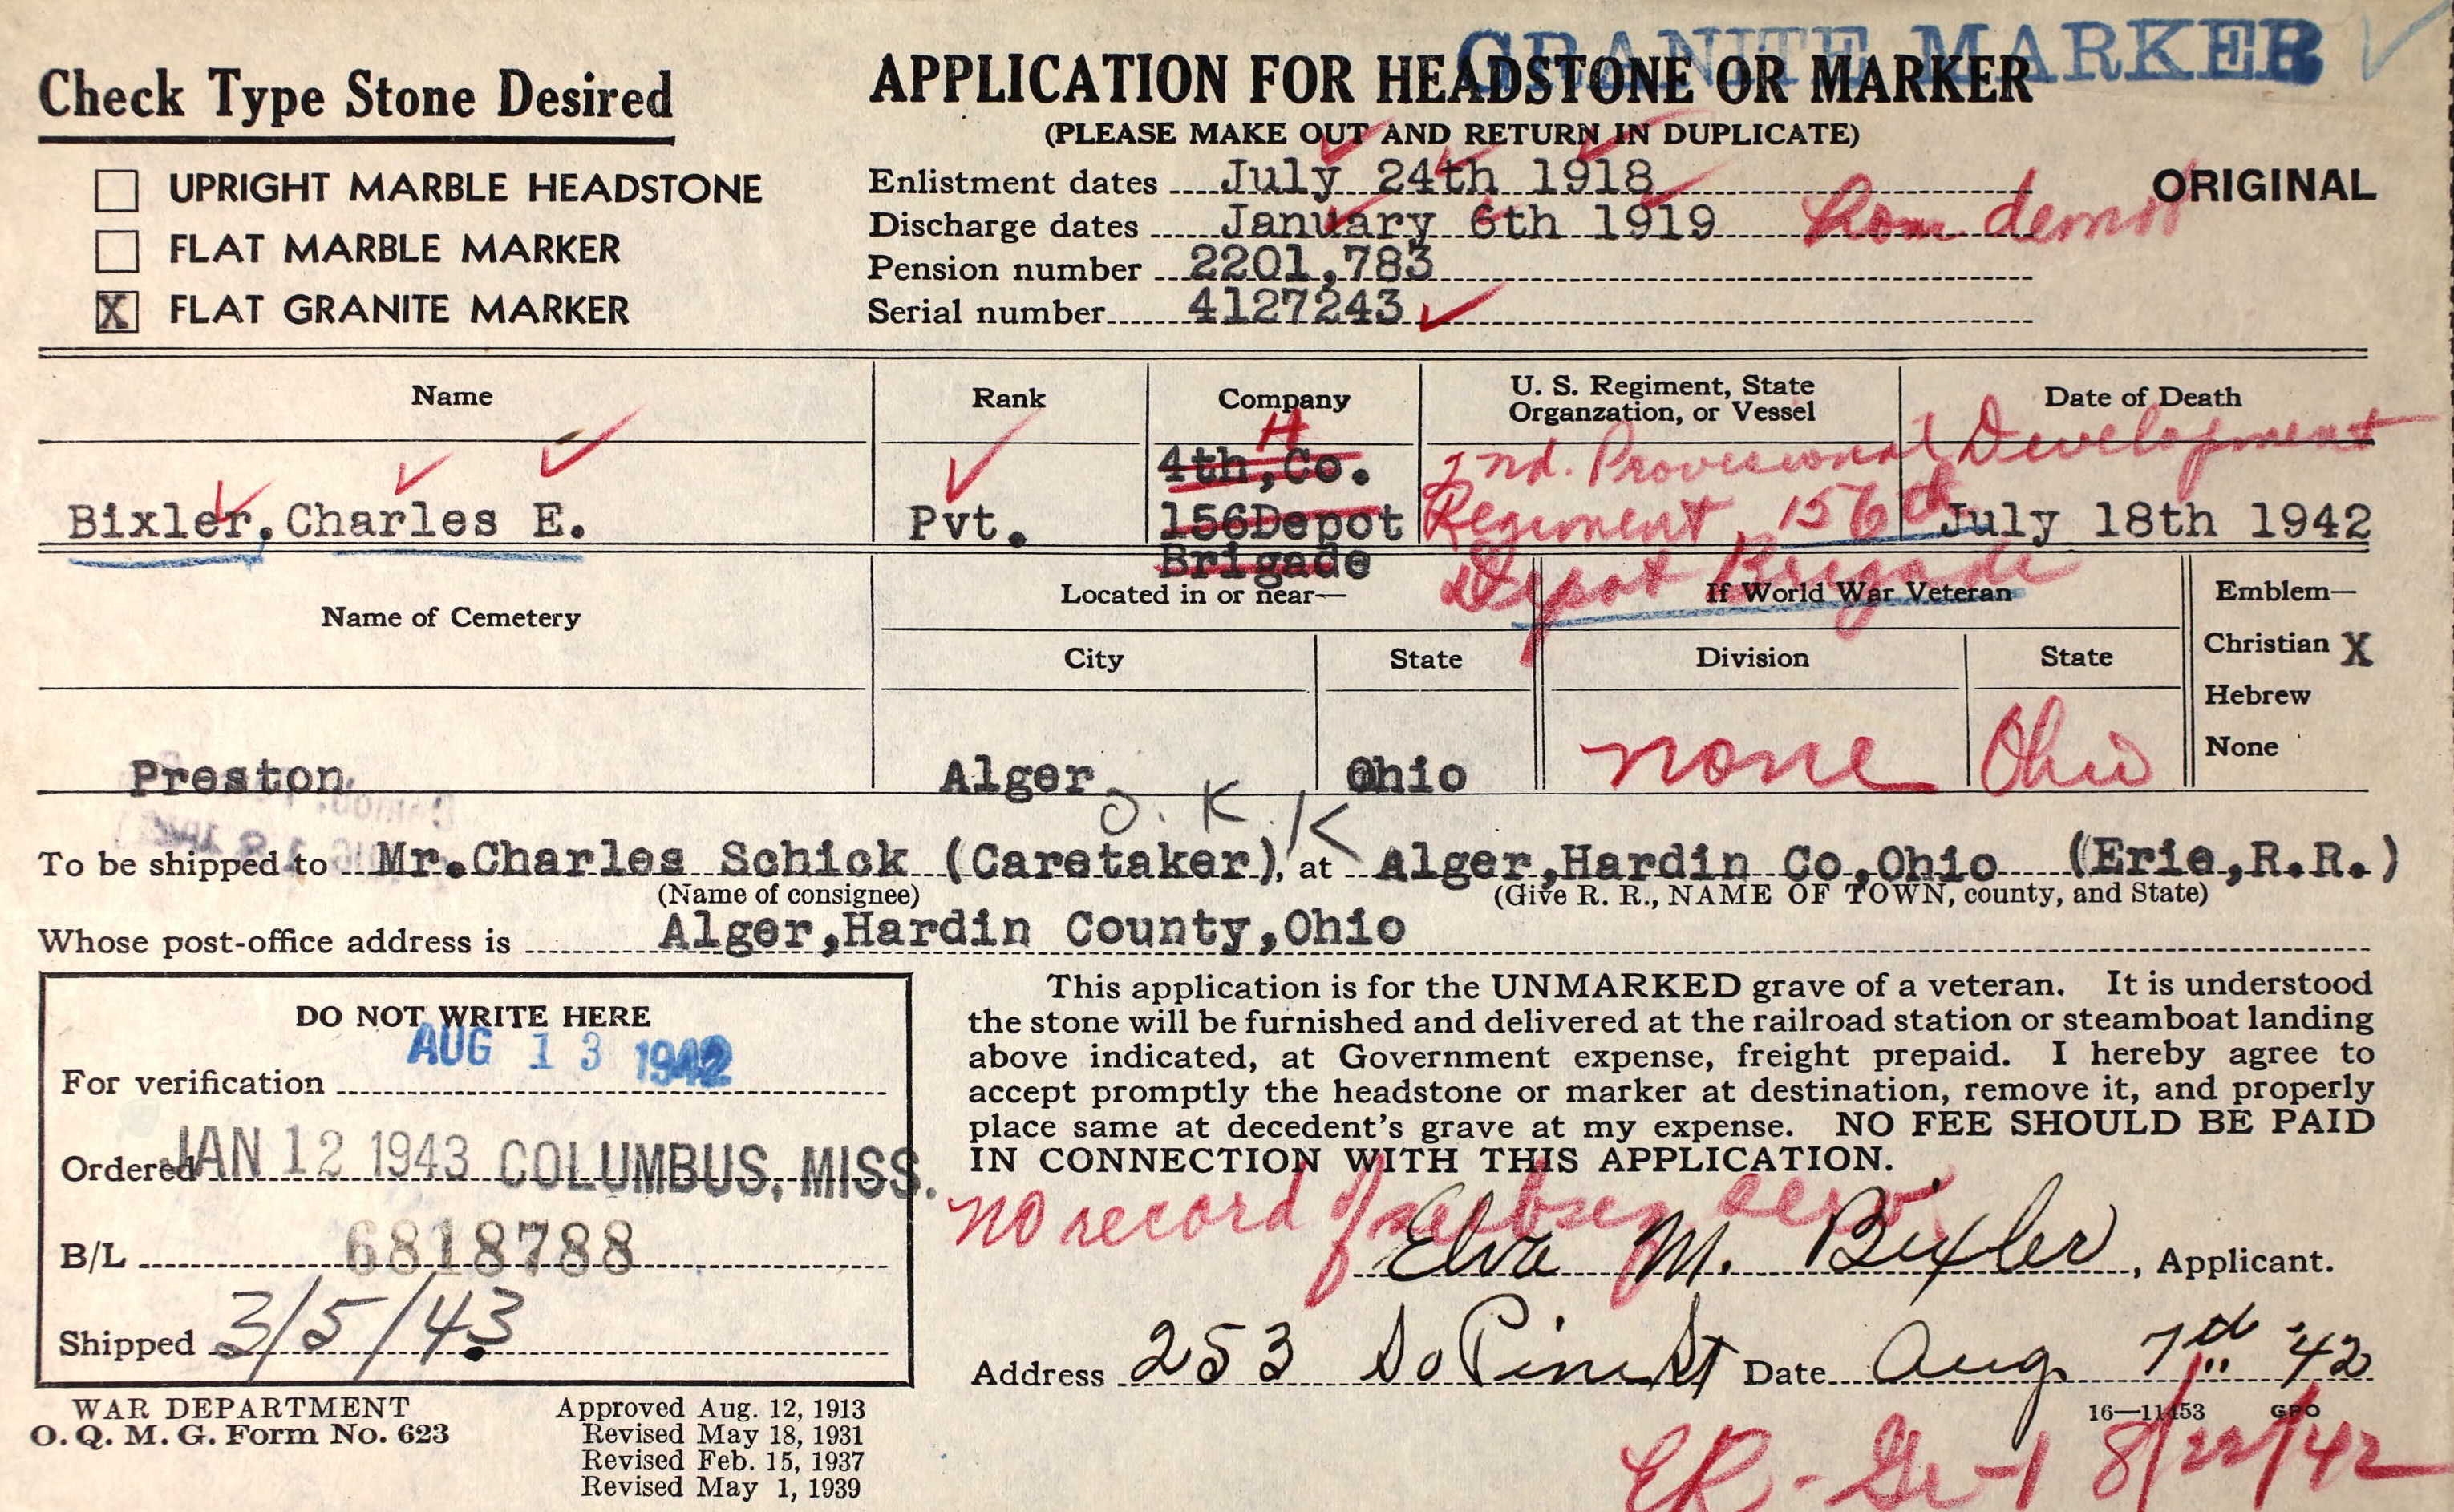 GRANITE MARKER
Check Type Stone Desired
APPLICATION FOR HEADSTONE OR MARKER
(PLEASE MAKE OUT AND RETURN IN DUPLICATE)
ORIGINAL
UPRIGHT MARBLE HEADSTONE
FLAT MARBLE MARKER
X FLAT GRANITE MARKER
Enlistment dates July 24th 1918
Discharge dates January 6th 1919
Pension number 2201,783
Serial number 4127243
Name
Rank
Company
U. S. Regiment, State
Organzation, or Vessel
Date of Death
Bixler, Charles E.
Pvt.
H
4th, Co.
156Depot
Brigade
2nd. Provisional Development
Regiment, 156th
Depot Brigade
July 18th 1942
Name of Cemetery
Located in or near—
If World War Veteran
Emblem—
City
State
Division
State
Christian X
Hebrew
None
Preston
Alger
Ohio
none
Ohio
O.K.
K
To be shipped to Mr.Charles Schick (Caretaker), at Alger,Hardin Co,Ohio (Erie,R.R.)
(Name of consignee) (Give R. R., NAME OF TOWN, county, and State)
Whose post-office address is Alger,Hardin County,Ohio
DO NOT WRITE HERE
AUG 13 1942
For verification
Ordered JAN 12 1943 COLUMBUS, MISS.
B/L 6818788
Shipped 3/5/43
This application is for the UNMARKED grave of a veteran. It is understood
the stone will be furnished and delivered at the railroad station or steamboat landing
above indicated, at Government expense, freight prepaid. I hereby agree to
accept promptly the headstone or marker at destination, remove it, and properly
place same at decedent's grave at my expense. NO FEE SHOULD BE PAID
IN CONNECTION WITH THIS APPLICATION.
no record of
Elva M. Bixler, Applicant.
Address 253 So Pine St Date Aug 7th '42
16—11453 GPO
WAR DEPARTMENT
O. Q. M. G. Form No. 623
Approved Aug. 12, 1913
Revised May 18, 1931
Revised Feb. 15, 1937
Revised May 1, 1939
8/22/42